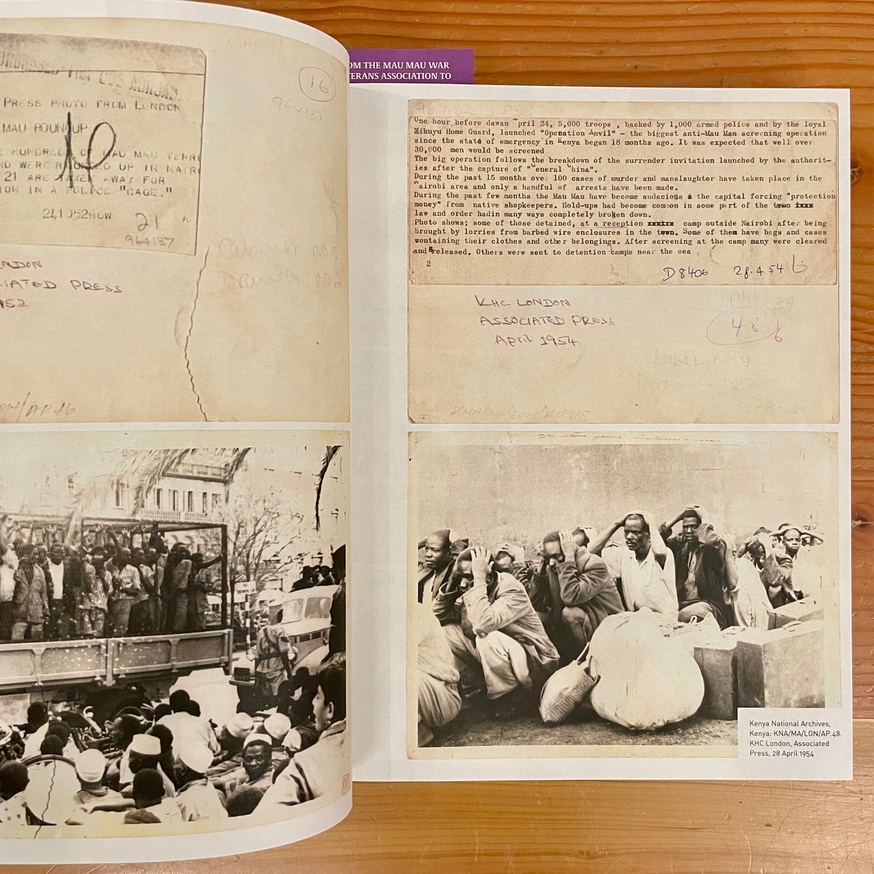 PRESS PHOTO FROM LONDON
MAU ROUNDUP
HUNDRED OF MAU MAU TERRI
ND WERE ROUNDED UP IN NAIR
21 ARE TAKEN AWAY FOR
ION IN A POLICE "CAGE."
241052HCW
21
964137
16
LONDON
IATED PRESS
OM THE MAU MAU WAR
TERANS ASSOCIATION TO
One hour before dawan April 24, 5,000 troops , backed by 1,000 armed police and by the loyal
Kikuyu Home Guard, launched "Operation Anvil" - the biggest anti-Mau Mau screening operation
since the state of emergency in Kenya began 18 months ago. It was expected that well over
30,000 men would be screened
The big operation follows the breakdown of the surrender invitation launched by the authorit-
ies after the capture of "General China".
During the past 15 months over 100 cases of murder and manslaughter have taken place in the
Nairobi area and only a handful of arrests have been made.
During the past few months the Mau Mau have become audacious in the capital forcing "protection
money" from native shopkeepers. Hold-ups had become common in some part of the town
law and order hadin many ways completely broken down.
Photo shows; some of those detained, at a reception camp outside Nairobi after being
brought by lorries from barbed wire enclosures in the town. Some of them have bags and cases
containing their clothes and other belongings. After screening at the camp many were cleared
and released. Others were sent to detention camps near the sea
2
D8406 28.4.54 6
KHC LONDON
ASSOCIATED PRESS
April 1954
48
6
Kenya National Archives,
Kenya: KNA/MA/LON/AP.48.
KHC London, Associated
Press, 28 April 1954